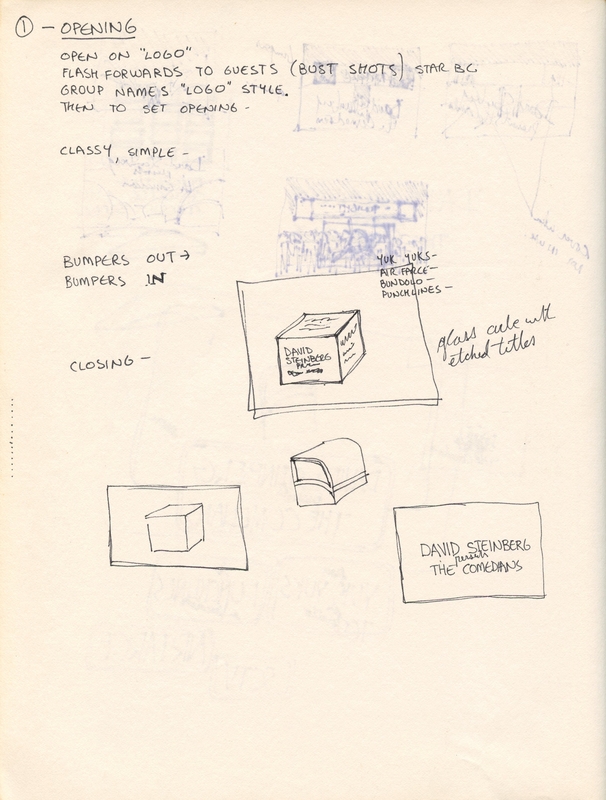 ① - OPENING
OPEN ON "LOGO"
FLASH FORWARDS TO GUESTS (BUST SHOTS) STAR BG
GROUP NAMES "LOGO" STYLE.
THEN TO SET OPENING -
CLASSY, SIMPLE -
BUMPERS OUT →
BUMPERS IN
YUK YUKS-
AIR FARCE-
BUNDOLO-
PUNCHLINES-
DAVID
STEINBERG
glass cube with
etched titles
CLOSING -
DAVID STEINBERG
THE COMEDIANS